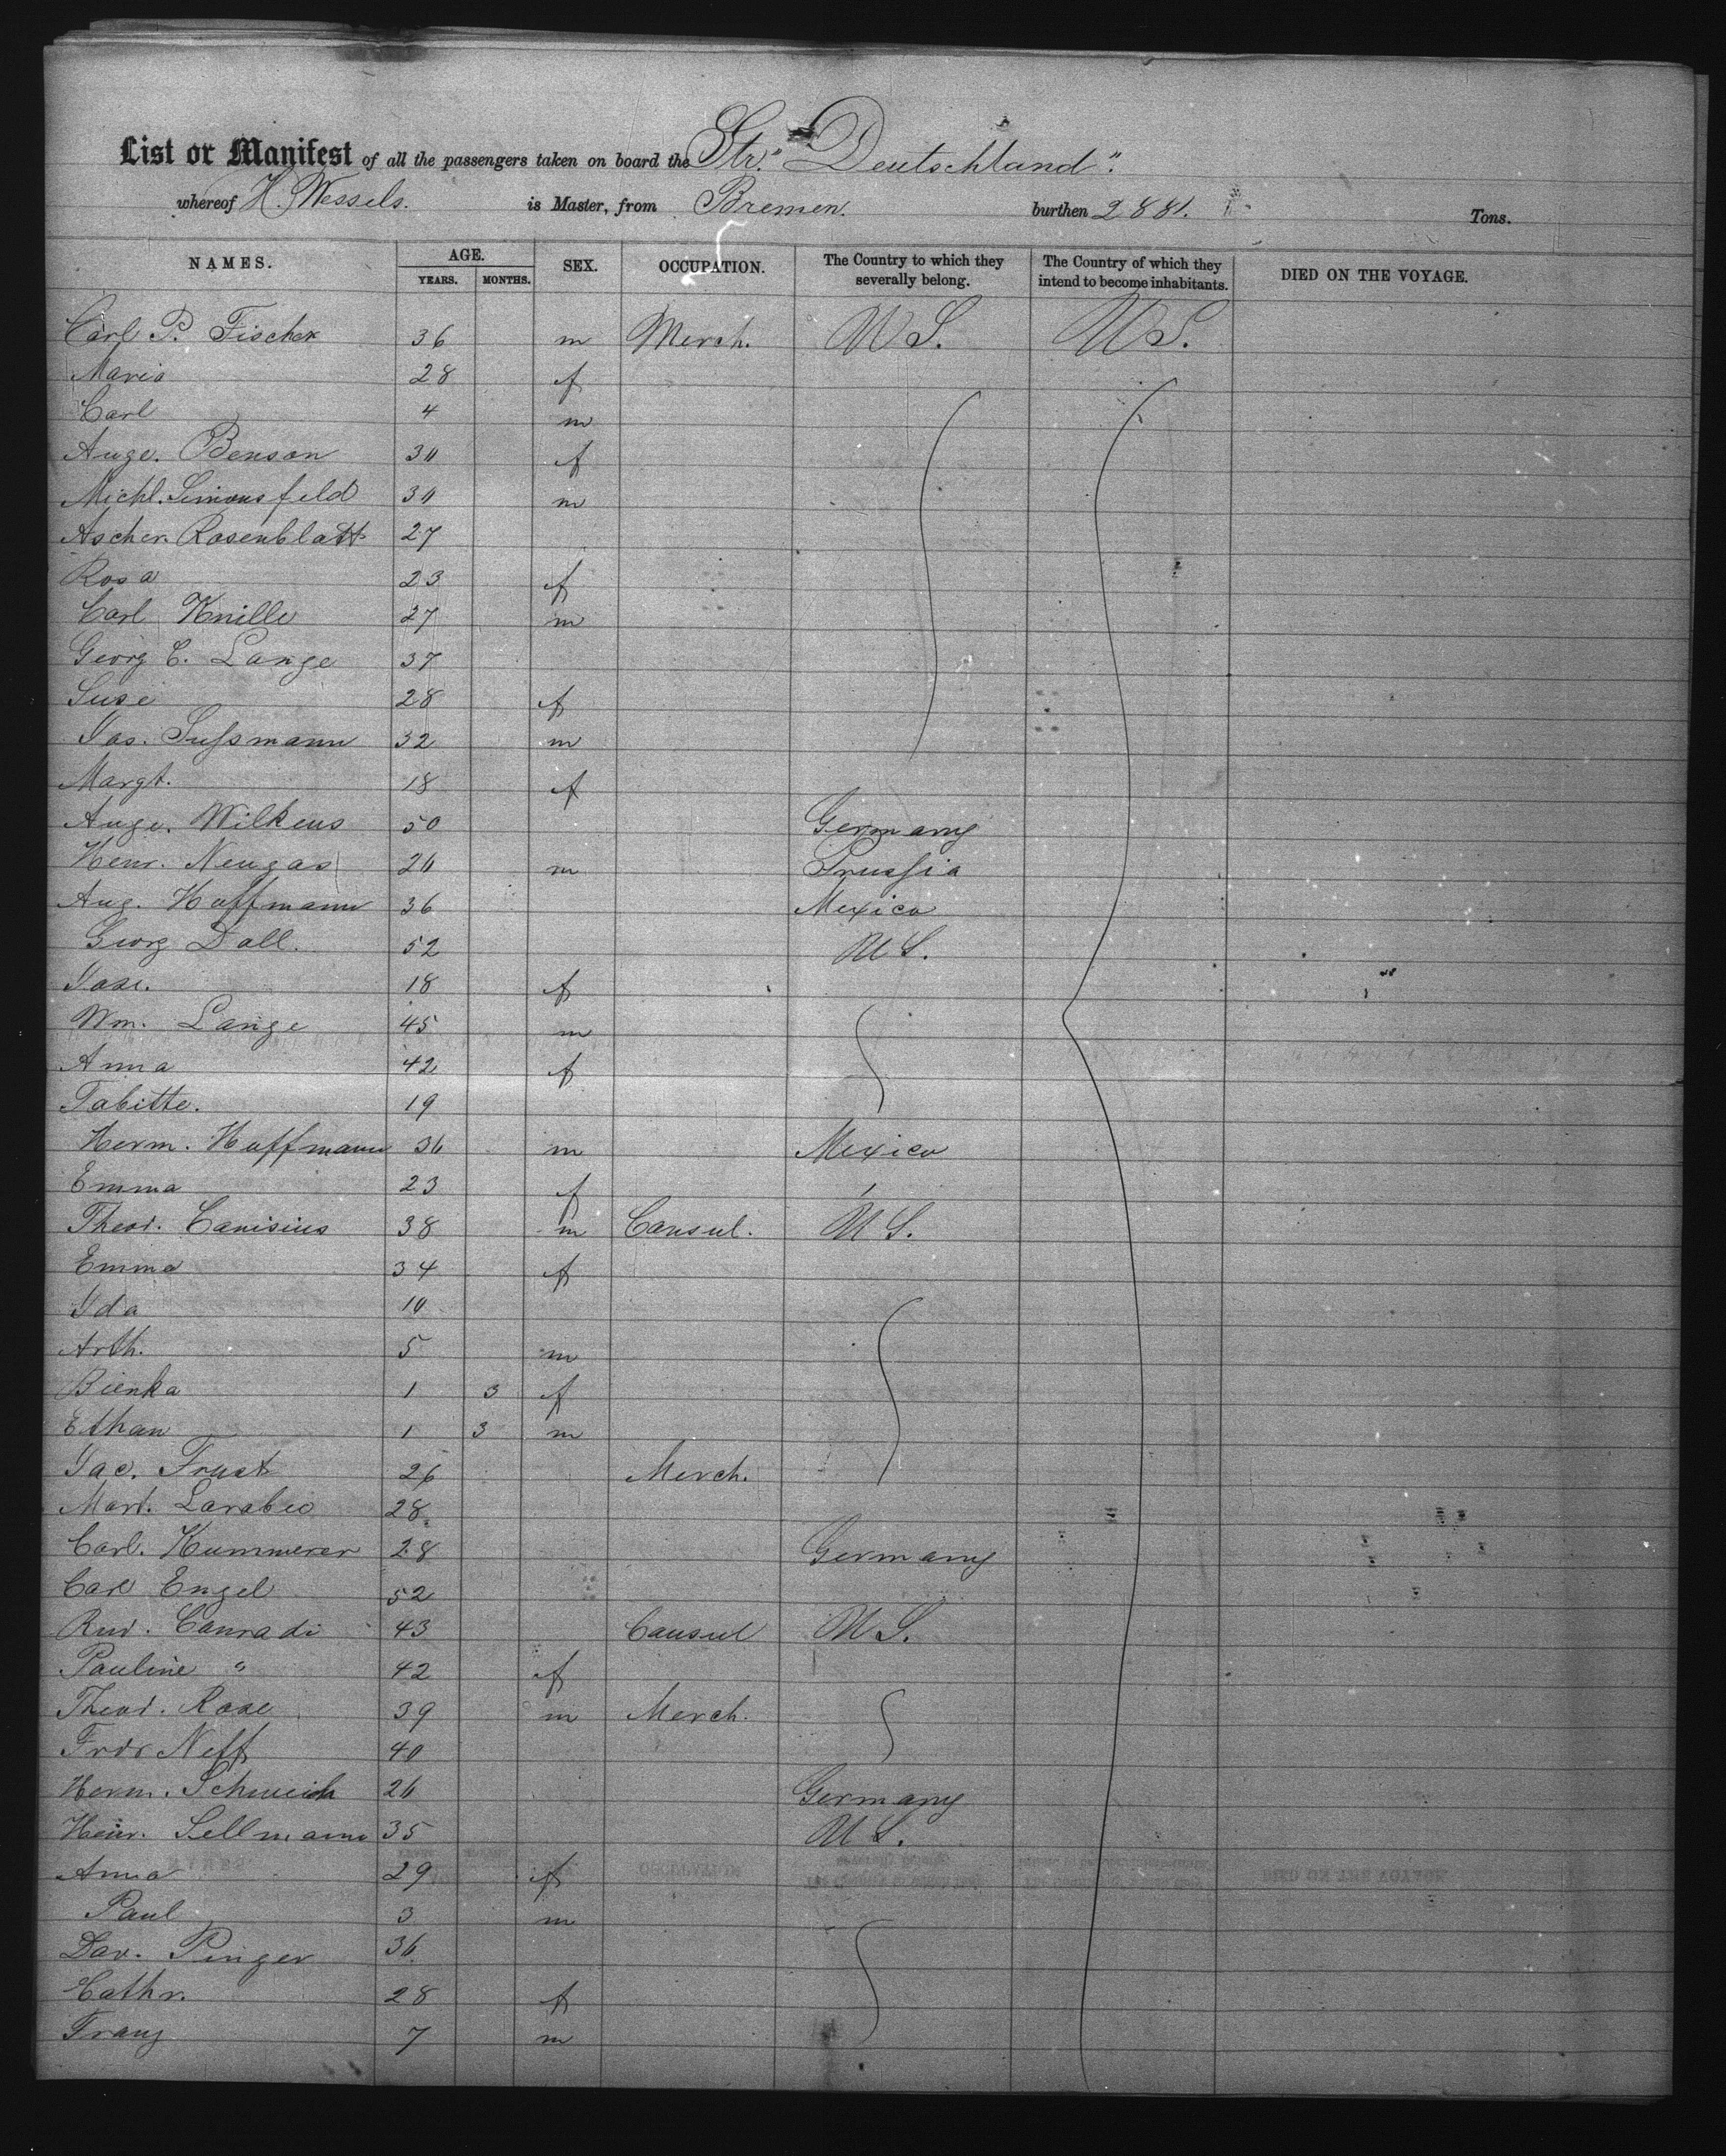 List or Manifest of all the passengers taken on board the Str. "Deutschland".
whereof H. Wessels. is Master, from Bremen. burthen 2881. Tons.
NAMES. AGE. YEARS. MONTHS. SEX. OCCUPATION. The Country to which they severally belong. The Country of which they intend to become inhabitants. DIED ON THE VOYAGE.
Carl P. Fischer 36 m Merch. U S. U S.
Maria 28 f
Carl 4 m
Auge. Benson 30 f
Michl. Simonsfeld 30 m
Ascher Rosenblatt 27
Rosa 23 f
Carl Knille 27 m
Georg C. Lange 37
Susi 28 f
Jos. Sussmann 32 m
Margt. 18 f
Auge. Wilkens 50 Germany
Henr. Neugas 20 m Prussia
Aug. Hoffmann 36 Mexico
Georg Dall. 52 U S.
Jose. 18 f
Wm. Lange 45 m
Anna 42 f
Tabitte. 19
Herm. Hoffmann 36 m Mexico
Emma 23 f
Theod. Canisius 38 m Consul. U S.
Emma 34 f
Ida 10
Arth. 5 m
Bienka 1 3 f
Ethan 1 3 m
Jac. Frust 26 Merch.
Mart. Larabeo 28
Carl. Kummerer 28 Germany
Carl Engel 52
Rud. Conradi 43 Consul U S.
Pauline " 42 f
Theod. Rose 39 m Merch.
Frdr Neff 40
Herm. Schweich 26 Germany
Heinr. Sellmann 35 U S.
Anna 29 f
Paul 3 m
Dav. Pinger 36
Cathr. 28 f
Franz 7 m